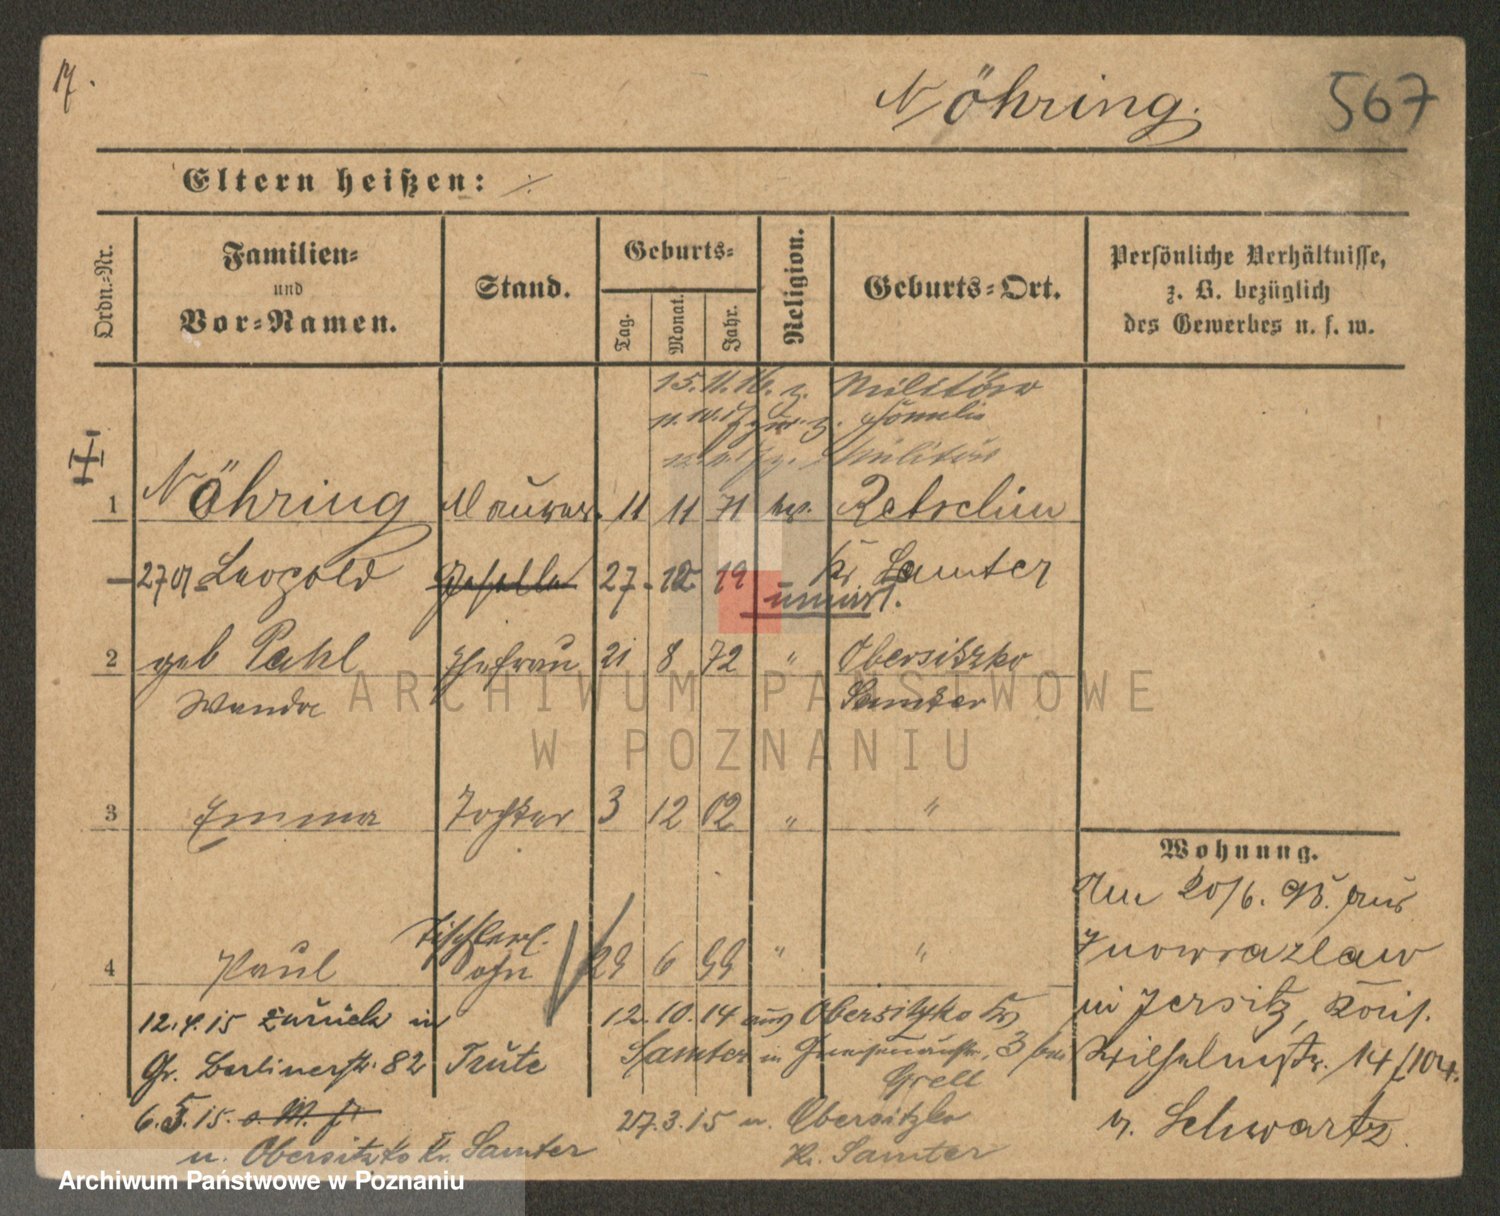 Nöhring.
567
Eltern heißen:
Ordn.=Nr.
Familien=
und
Vor=Namen.
Stand.
Geburts=
Tag.
Monat.
Jahr.
Religion.
Geburts=Ort.
Persönliche Verhältnisse,
z. B. bezüglich
des Gewerbes u. s. w.
15.11.16. z. Militär
z. Familie
Militär
1 Nöhring Maurer 11 11 71 ev. Retschin
2701 Leopold Geselle 27. 12 19 Kr. Samter
2 geb Pahl Ehefrau 21 8 72 " Obersitzko
Wanda Samter
3 Emma Tochter 3 12 02 " "
Wohnung.
Am 20/6. 95. aus
Tischlerl.
4 Paul Sohn 29 6 99 " " Inowrazlaw
12.4.15 zurück in 12.10.14 aus Obersitzko Kr in Jersitz, König.
Gr. Berlinerstr. 82 Trute Samter in 3 bei Wilhelmstr. 14/104.
Grell
6.5.15. 27.3.15 n. Obersitzko v. Schwartz.
n. Obersitzko Kr. Samter Kr. Samter
ARCHIWUM PAŃSTWOWE
W POZNANIU
Archiwum Państwowe w Poznaniu